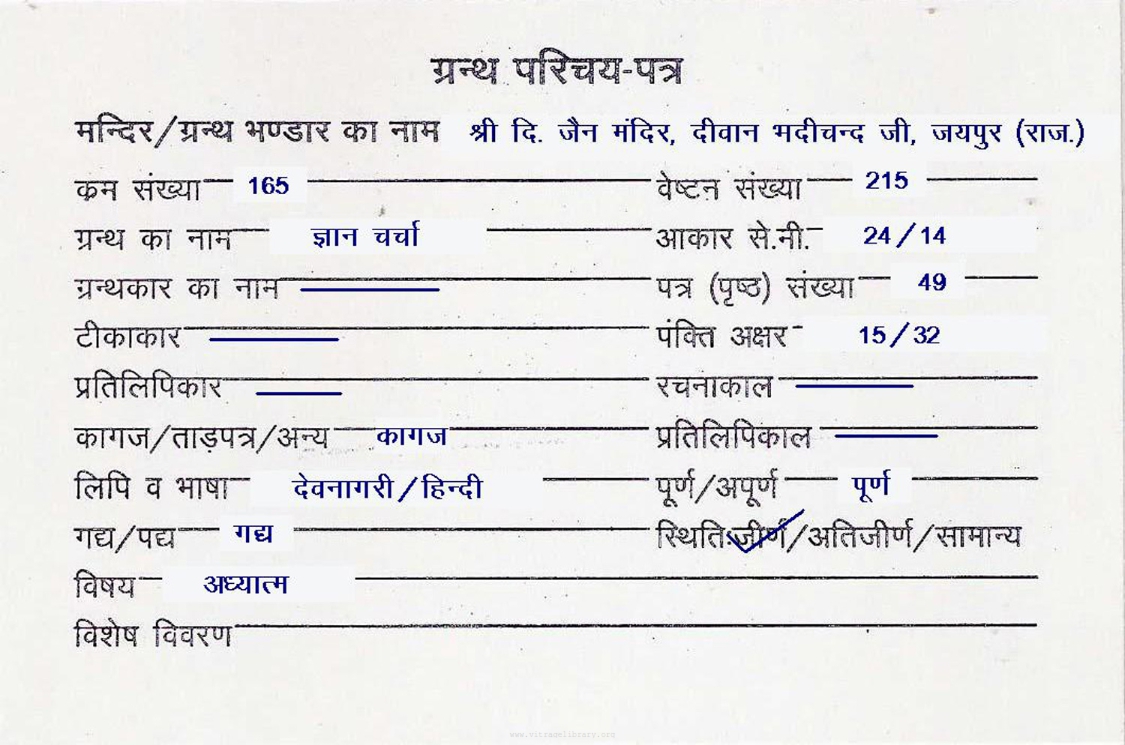 ग्रन्थ परिचय-पत्र
मन्दिर/ग्रन्थ भण्डार का नाम श्री दि. जैन मंदिर, दीवान भदीचन्द जी, जयपुर (राज.)
क्रम संख्या 165 वेष्टन संख्या 215
ग्रन्थ का नाम ज्ञान चर्चा आकार से.मी. 24/14
ग्रन्थकार का नाम पत्र (पृष्ठ) संख्या 49
टीकाकार पंक्ति अक्षर 15/32
प्रतिलिपिकार रचनाकाल
कागज/ताड़पत्र/अन्य कागज प्रतिलिपिकाल
लिपि व भाषा देवनागरी/हिन्दी पूर्ण/अपूर्ण पूर्ण
गद्य/पद्य गद्य स्थिति:जीर्ण/अतिजीर्ण/सामान्य
विषय अध्यात्म
विशेष विवरण